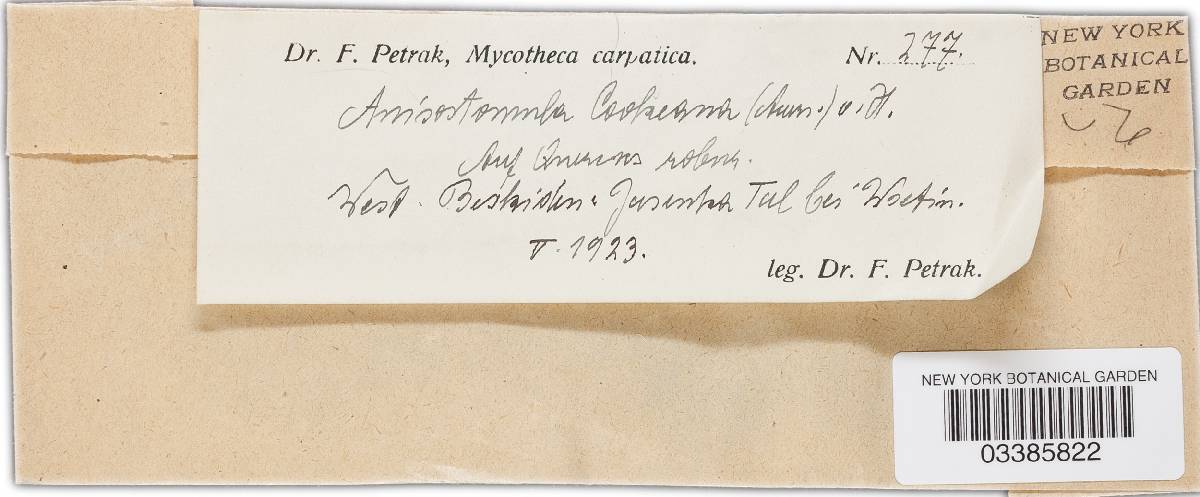 Dr. F. Petrak, Mycotheca carpatica. Nr. 277.
NEW YORK
BOTANICAL
GARDEN
Anisostomula Cookeana (Auer.) v. H.
Auf Quercus robur.
West-Beskiden: Jasenka Tal bei Wsetin.
V. 1923.
leg. Dr. F. Petrak.
NEW YORK BOTANICAL GARDEN
03385822